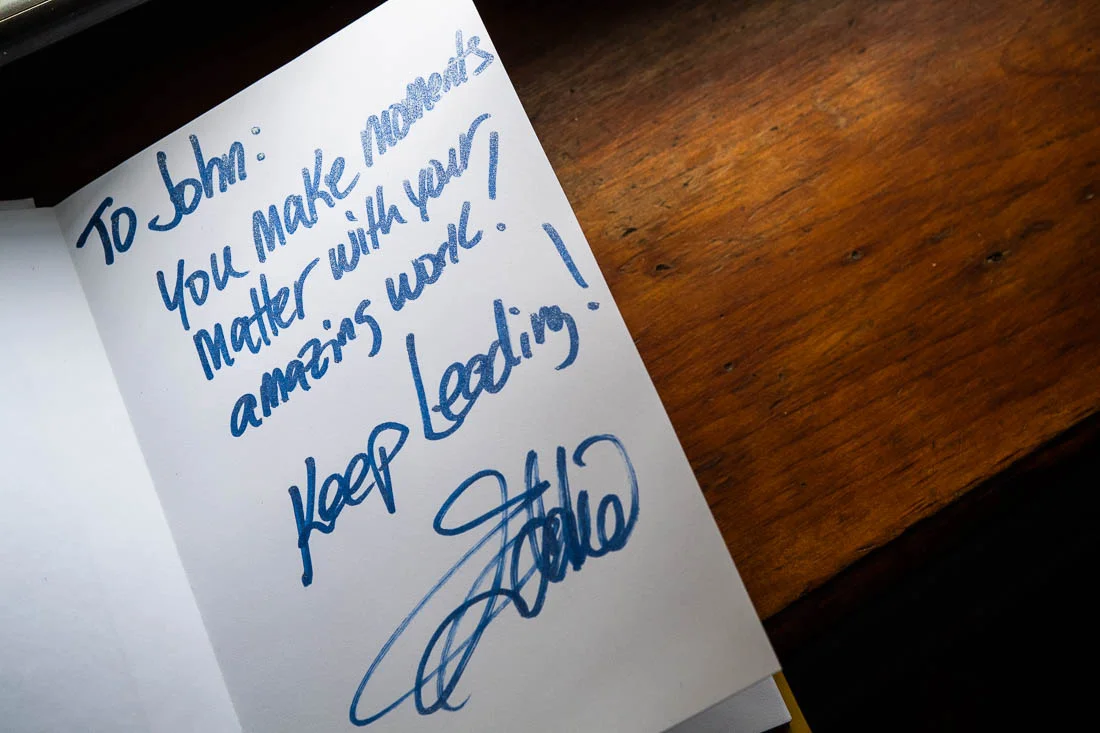 To John:
You make moments
matter with your
amazing work!
Keep Leading!